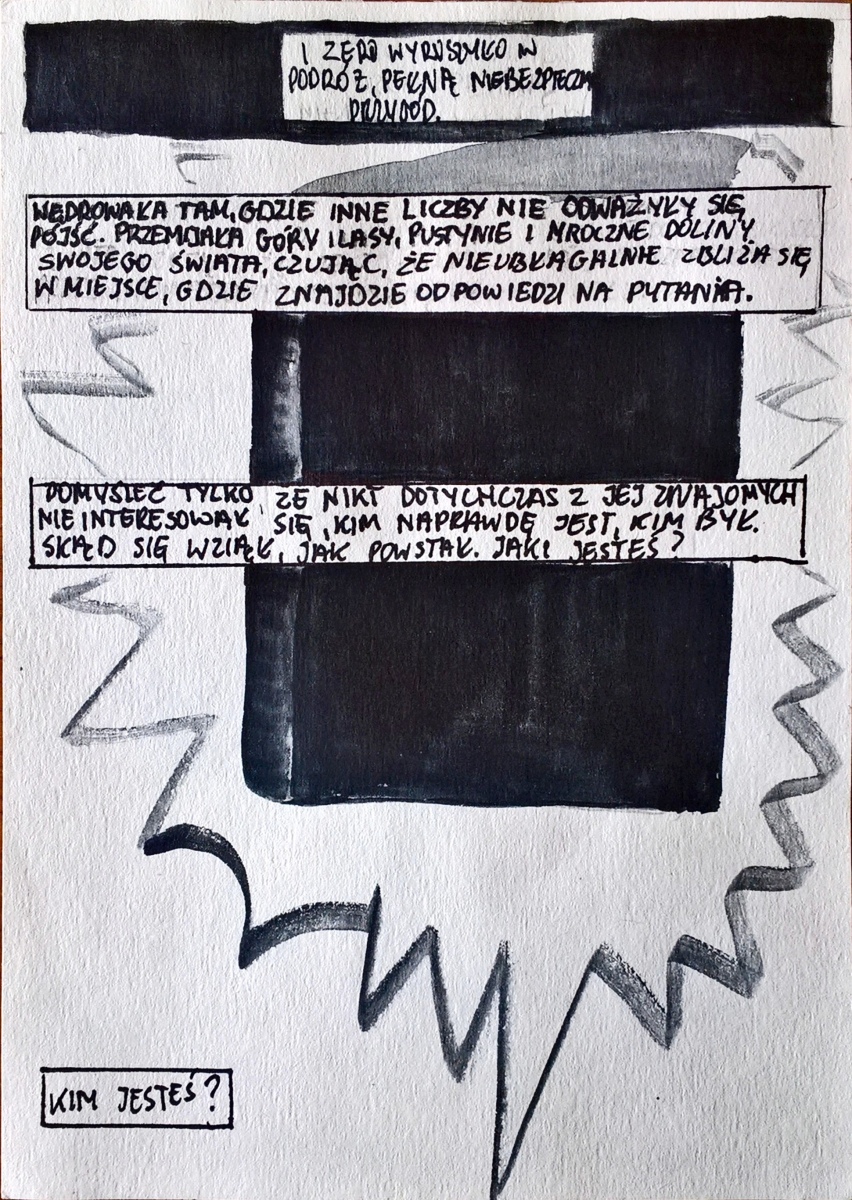 I ZERO WYRUSZYŁO W
PODRÓŻ, PEŁNĄ NIEBEZPIECZN
PRZYGÓD.
WĘDROWAŁA TAM, GDZIE INNE LICZBY NIE ODWAŻYŁY SIĘ
PÓJŚĆ. PRZEMIJAŁA GÓRY I LASY, PUSTYNIE I MROCZNE DOLINY
SWOJEGO ŚWIATA, CZUJĄC, ŻE NIEUBŁAGALNIE ZBLIŻA SIĘ
W MIEJSCE, GDZIE ZNAJDZIE ODPOWIEDZI NA PYTANIA.
POMYŚLEĆ TYLKO ŻE NIKT DOTYCHCZAS Z JEJ ZNAJOMYCH
NIE INTERESOWAŁ SIĘ, KIM NAPRAWDĘ JEST, KIM BYŁ.
SKĄD SIĘ WZIĄŁ, JAK POWSTAŁ. JAKI JESTEŚ?
KIM JESTEŚ?